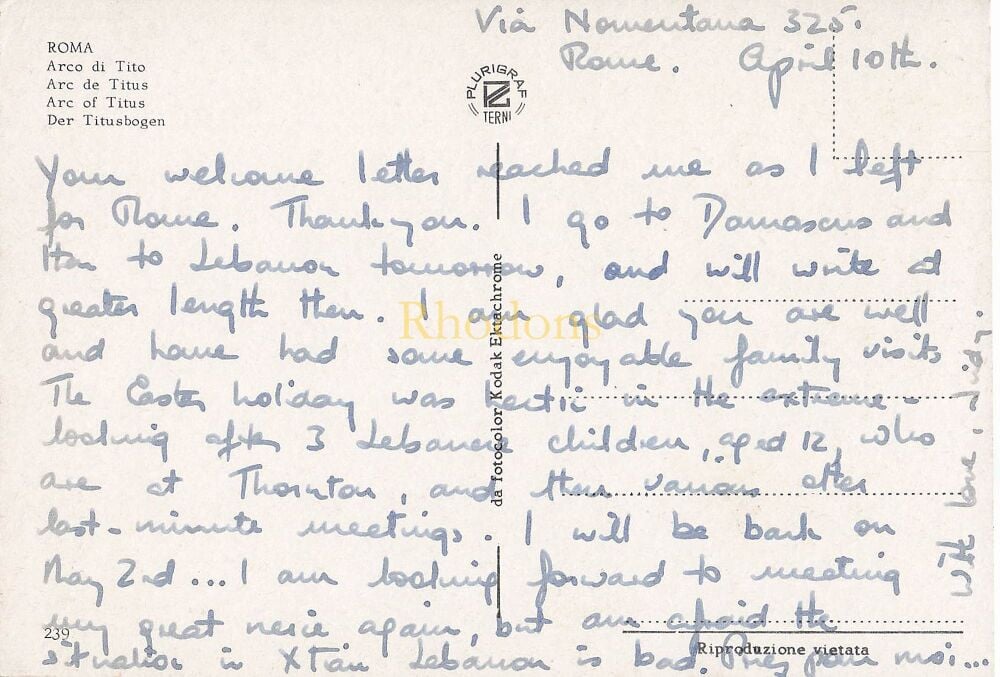 Via Nomentana 325.
Rome. April 10th.
ROMA
Arco di Tito
Arc de Titus
Arc of Titus
Der Titusbogen
PLURIGRAF
TERNI
Your welcome letter reached me as I left
for Rome. Thank-you. I go to Damascus and
then to Lebanon tomorrow, and will write at
greater length then. I am glad you are well
and have had some enjoyable family visits
The Easter holiday was hectic in the extreme -
looking after 3 Lebanese children, aged 12, who
are at Thornton, and then various other
last-minute meetings. I will be back on
May 2nd... I am looking forward to meeting
my great neice again, but am afraid the
situation in Xtian Lebanon is bad. Priez pour moi...
With love.
da fotocolor Kodak Ektachrome
Rhodons
239
Riproduzione vietata